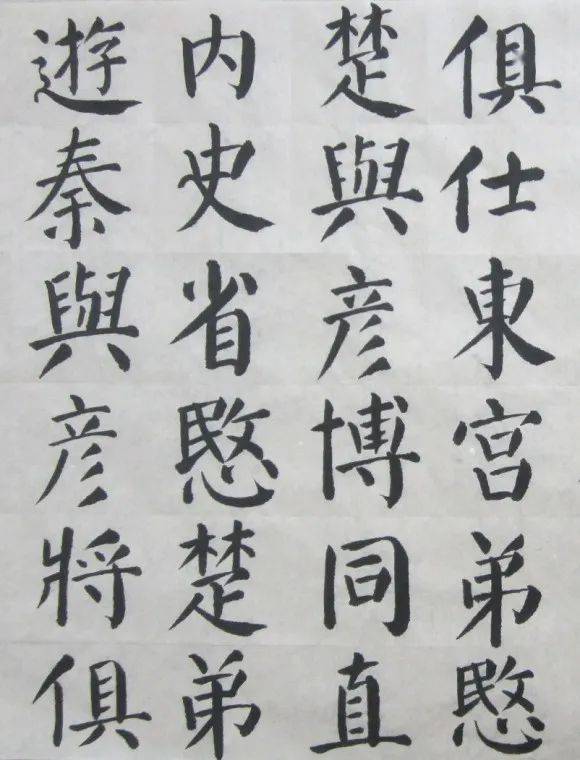 俱仕東宮弟愍
楚與彦博同直
内史省愍楚弟
遊秦與彦將俱